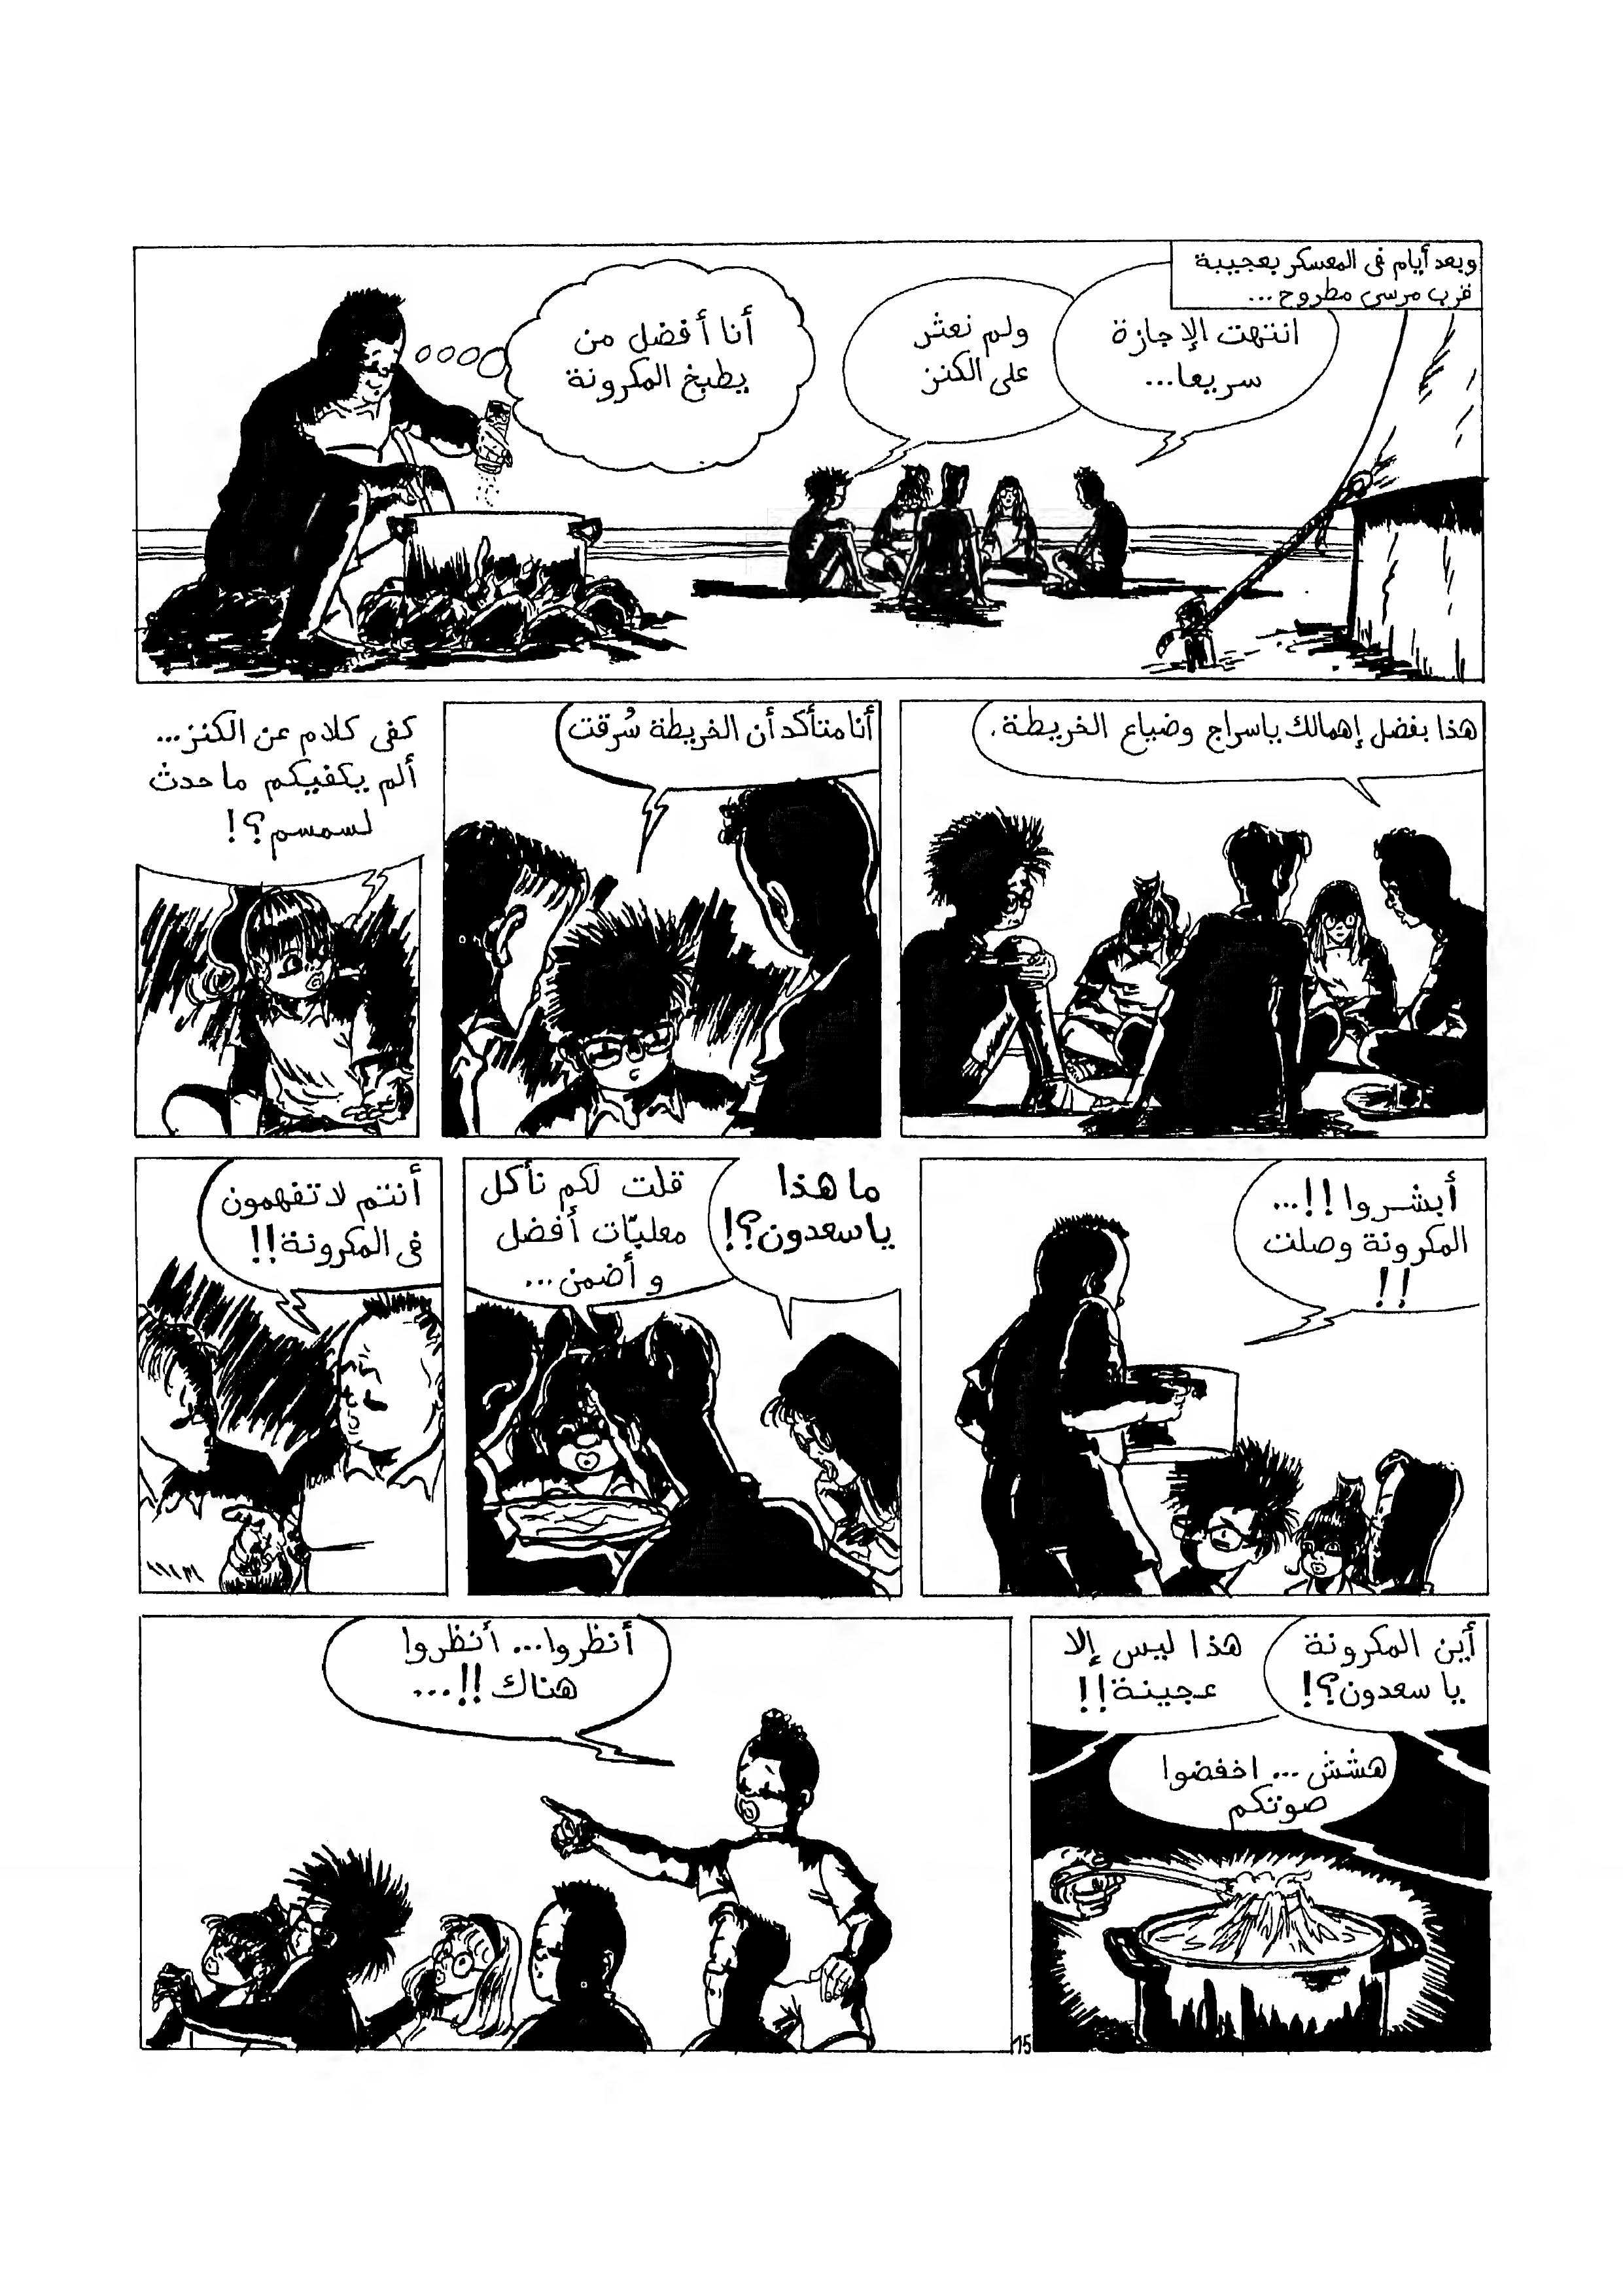 وبعد أيام فى المعسكر بعجيبة
قرب مرسى مطروح...
انتهت الإجازة
سريعا...
ولم نعثر
على الكنز
أنا أفضل من
يطبخ المكرونة
هذا بفضل إهمالك ياسراج وضياع الخريطة.
أنا متأكد أن الخريطة سُرقت
كفى كلام عن الكنز...
ألم يكفيكم ما حدث
لسمسم؟!
أبشروا!!...
المكرونة وصلت
!!
ما هذا
يا سعدون؟!
قلت لكم نأكل
معلبّات أفضل
و أضمن...
أنتم لا تفهمون
فى المكرونة!!
أين المكرونة
يا سعدون؟!
هذا ليس إلا
عجينة!!
هشش... اخفضوا
صوتكم
أنظروا... أنظروا
هناك!!...
15